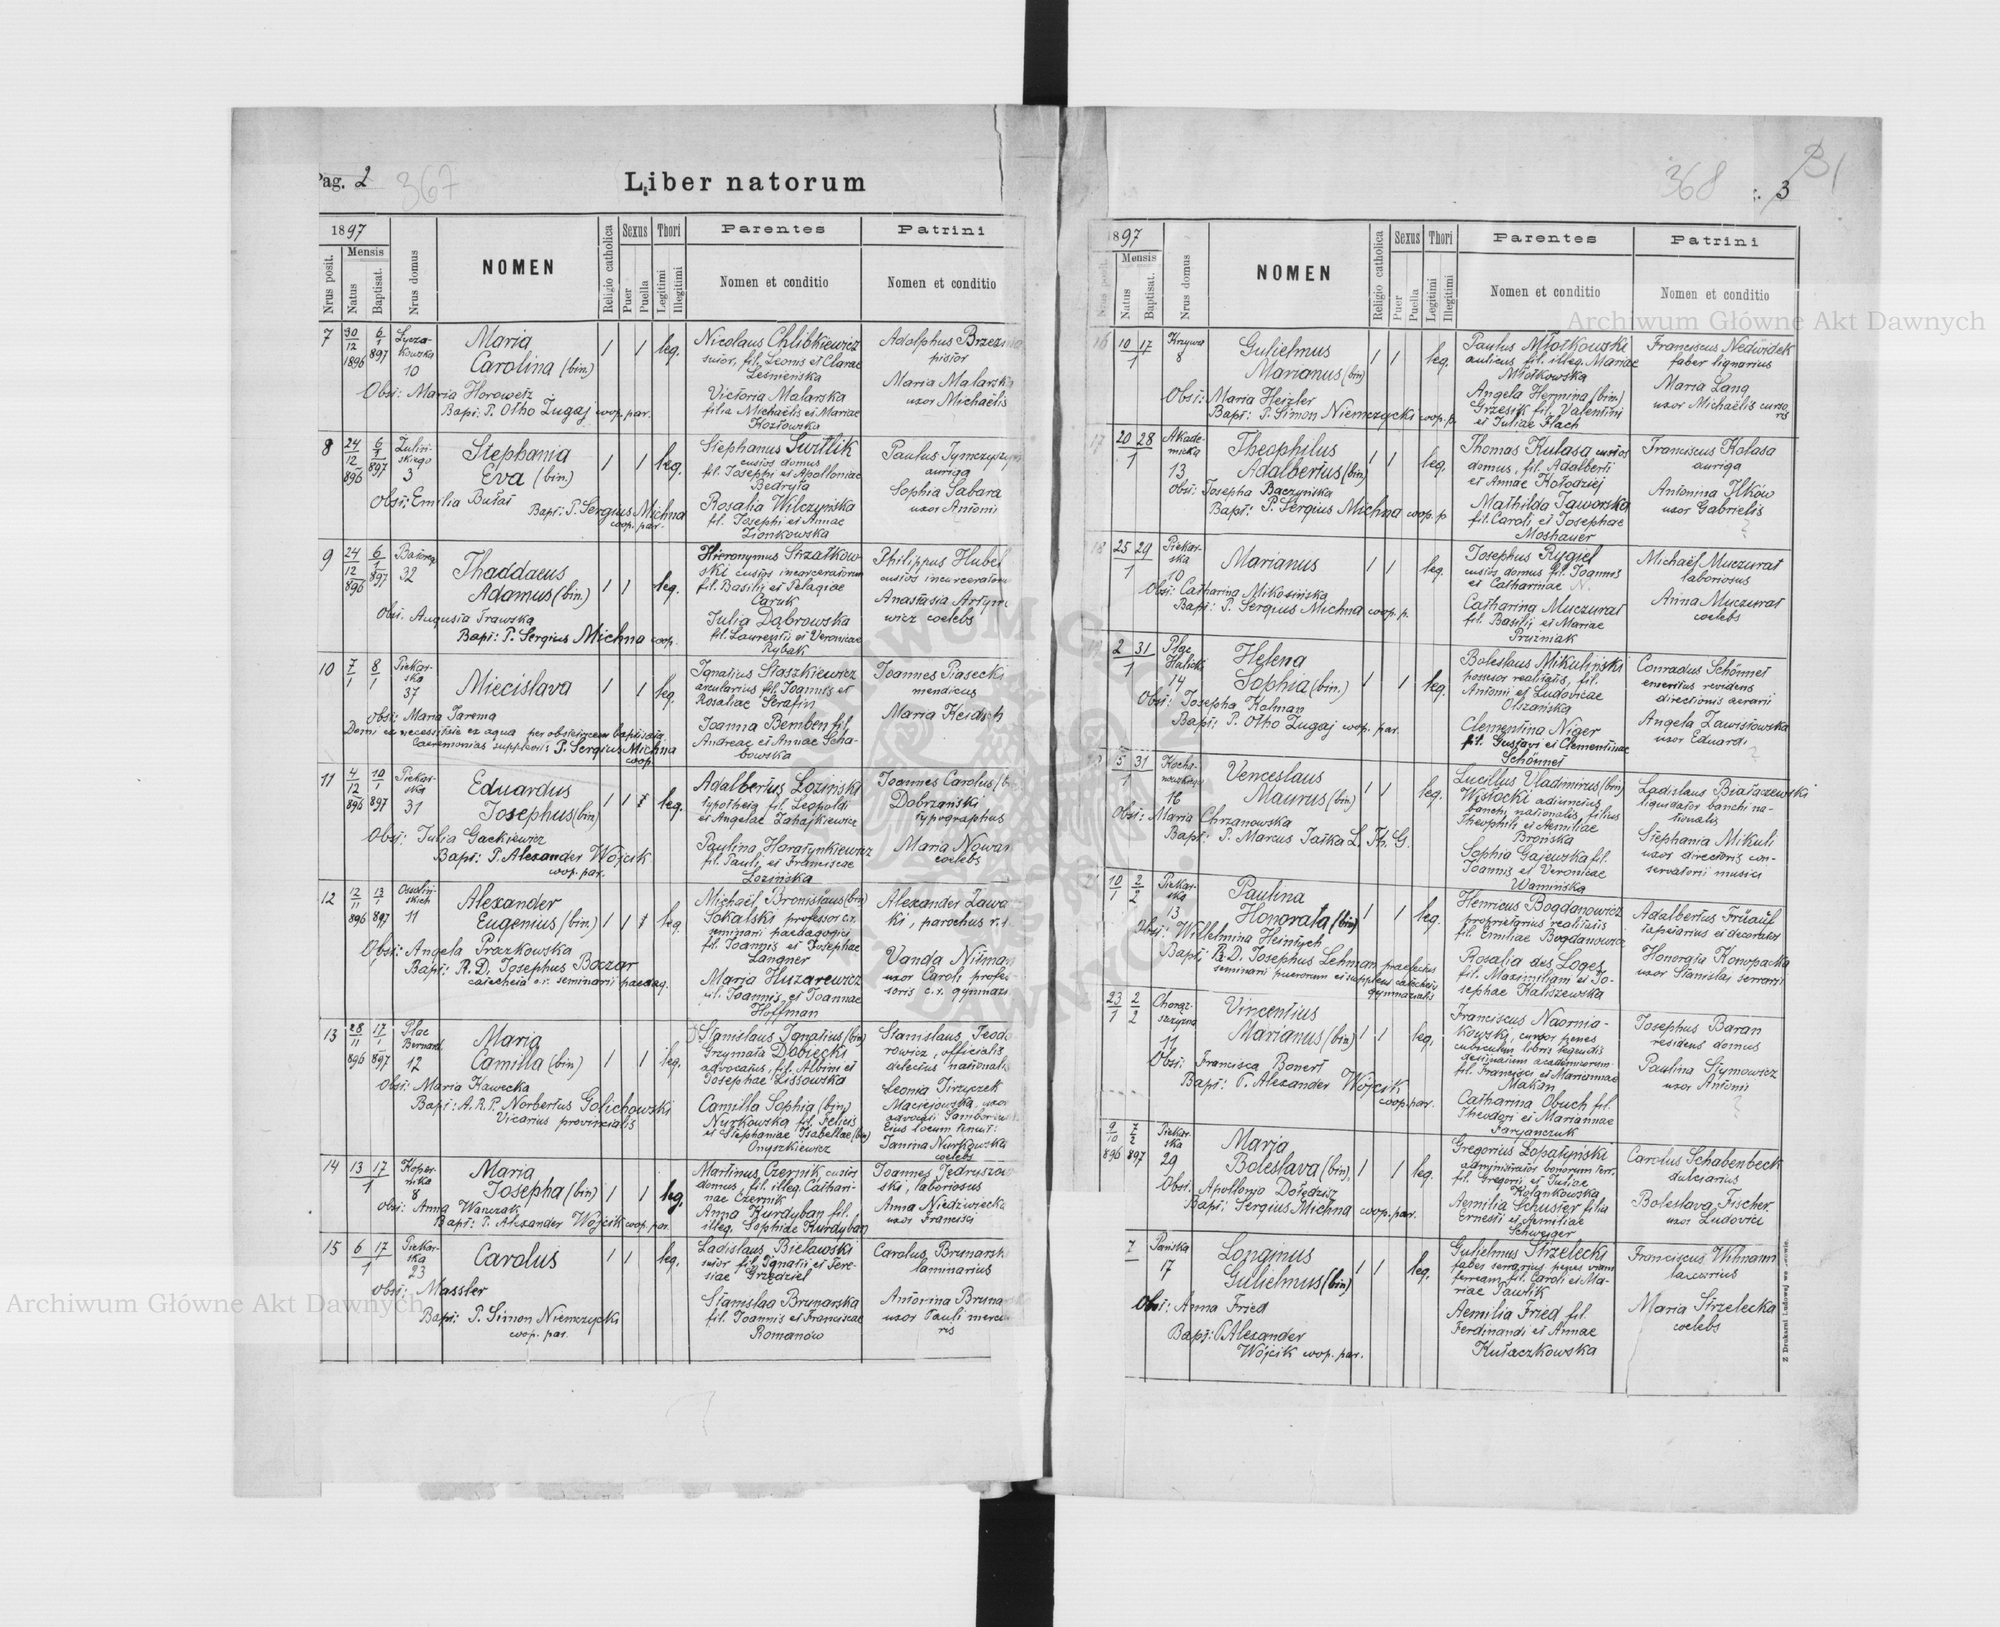 Pag. 2
367
Liber natorum
1897
Nrus posit.
Mensis
Natus
Baptisat.
Nrus domus
NOMEN
Religio catholica
Sexus
Puer
Puella
Thori
Legitimi
Illegitimi
Parentes
Nomen et conditio
Patrini
Nomen et conditio
7 30/12 1896 6/1 897 Łycza-
kowska
10
Maria
Carolina (bin.)
1 1 leg.
Obst: Maria Horowetz
Bapt: P. Otho Zugaj coop. par.
Nicolaus Chlibkiewicz
sutor, fil. Leonis et Clarae
Leśnieńska
Victoria Malarska
filia Michaëlis et Mariae
Kozłowska
Adolphus Brzezina
pistor
Maria Malarska
uxor Michaëlis
8 24/12 896 6/1 897 Zuliń-
skiego
3
Stephania
Eva (bin.)
1 1 leg.
Obst: Emilia Butat
Bapt: P. Sergius Michna
coop. par.
Stephanus
custos domus
fil. Josephi et Apolloniae
Bedryła
Rosalia Wilczyńska
fil. Josephi et Annae
Zionkowska
Paulus
auriga
Sophia Sabara
uxor Antonii
9 24/12 896 6/1 897 Batorego
32
Thaddaeus
Adamus (bin.)
1 1 leg.
Obst. Augusta Trawska
Bapt: P. Sergius Michna coop.
Hieronymus Strzałkow-
ski custos incarceratorum
fil. Basilii et Pelagiae
Caruk
Julia Dąbrowska
fil. Laurentii et Veronicae
Rybak
Philippus Hubel
custos incarceratoru
Anastasia Artym
wicz coelebs
10 7/1 8/1 Piekar-
ska
37
Miecislava
1 1 leg.
Obst: Maria Jarema
Domi ex necessitate ex aqua per obstetricem baptisata
Caeremonias supplevit: P. Sergius Michna
coop.
Ignatius Staszkiewicz
arcularius fil. Joannis et
Rosaliae Serafin
Joanna Bemben fil.
Andreae et Annae Scha-
bowska
Joannes Piasecki
mendicus
Maria Keidsch
11 4/12 896 10/1 897 Piekar-
ska
31
Eduardus
Josephus (bin)
1 1 leg.
Obst: Julia Gackiewicz
Bapt: P. Alexander Wójcik
coop. par.
Adalbertus Łoziński
typotheta fil. Leopoldi
et Angelae Zahajkiewicz
Paulina Horatynkiewicz
fil. Pauli et Franciscae
Łozińska
Joannes Carolus (b
Dobrzański
typographus
Maria Nowar
coelebs
12 12/11 896 13/1 897 Ossoliń-
skich
11
Alexander
Eugenius (bin.)
1 1 leg.
Obst: Angela Prazkowska
Bapt: R. D. Josephus Boczar
catecheta c.r. seminarii paedag.
Michaël Bronislaus (bin)
Sokalski professor c.r.
seminarii paedagogici
fil. Joannis et Josephae
Langner
Maria Huzarewicz
fil. Joannis et Joannae
Hoffman
Alexander Zawa
ki, parochus r.
Vanda Nitman
uxor Caroli profes
soris c.r. gymnasi
13 28/11 896 17/1 897 Plac
Bernard.
12
Maria
Camilla (bin)
1 1 leg.
Obst: Maria Kawecka
Bapt: A.R.P. Norbertus Golichowski
Vicarius provincialis
Stanislaus Ignatius (bin)
Grzymała Dobiecki
advocatus, fil. Albini et
Josephae Lissowska
Camilla Sophia (bin)
Nurkowska fil. Felicis
et Stephaniae Isabellae (bin)
Onyszkiewicz
Stanislaus Teodo
rowicz, officialis
delectus nationalis
Leonia
Maciejowska uxor
advocati
Eius locum tenuit:
Janina Nurkowska
coelebs
14 13 17/1 Koper-
nika
8
Maria
Josepha (bin)
1 1 leg.
Obst: Anna Wańczak
Bapt: P. Alexander Wójcik coop. par.
Martinus Czernik, custos
domus, fil. illeg. Cathari-
nae Czernik
Anna Kurdyban fil.
illeg. Sophiae Kurdyban
Joannes Jędruszow
ski, laboriosus
Anna Niedźwiecka
uxor Francisci
15 6 17/1 Piekar-
ska
23
Carolus
1 1 leg.
Obst: Massler
Bapt: P. Simon Niemczycki
coop. par.
Ladislaus Bielawski
sutor fil. Ignatii et Tere-
siae Grzędziel
Stanislaa Brunarska
fil. Joannis et Franciscae
Romanów
Carolus Brunarsk
laminarius
Antonina Brunar
uxor Pauli merca
ris
368
3
1897
Nrus posit.
Mensis
Natus
Baptisat.
Nrus domus
NOMEN
Religio catholica
Sexus
Puer
Puella
Thori
Legitimi
Illegitimi
Parentes
Nomen et conditio
Patrini
Nomen et conditio
16 10 17/1 Krzywa
8
Gulielmus
Marianus (bin)
1 1 leg.
Obst: Maria Heizler
Bapt: P. Simon Niemczycki coop. p.
Paulus Młotkowski
aulicus fil. illeg. Mariae
Młotkowska
Angela Hermina (bin.)
Grzesik fil. Valentini
et Juliae Flach
Franciscus Nedwidek
faber lignarius
Maria Lang
uxor Michaëlis curso
ris
17 20 28/1 Akade-
micka
13
Theophilus
Adalbertus (bin)
1 1 leg.
Obst: Josepha Baczyńska
Bapt: P. Sergius Michna coop. p
Thomas Kulasa custos
domus, fil. Adalberti
et Annae Kołodziej
Mathilda Jaworska
fil. Caroli et Josephae
Moshauer
Franciscus Kolasa
auriga
Antonina Ilków
uxor Gabrielis
18 25 29/1 Piekar-
ska
10
Marianus
1 1 leg.
Obst: Catharina Mikosińska
Bapt: P. Sergius Michna coop. p.
Josephus Rygiel
custos domus fil. Joannis
et Catharinae N.
Catharina Muczurat
fil. Basilii et Mariae
Pruźniak
Michaël Muczurat
laboriosus
Anna Muczurat
coelebs
2 31/1 Plac
Halicki
14
Helena
Sophia (bin.)
1 1 leg.
Obst: Josepha Kolman
Bapt: P. Otho Zugaj coop. par.
Boleslaus Mikuliński
possesor realitatis, fil.
Antonii et Ludovicae
Olszańska
Clementina Niger
fil. Gustavi et Clementinae
Schönnet
Conradus Schönnet
emeritus revidens
directionis aerarii
Angela Zawistowska
uxor Eduardi
5 31/1 Kocha-
nowskiego
16
Venceslaus
Maurus (bin)
1 1 leg.
Obst: Maria Chrzanowska
Bapt: P. Marcus Jałka L. Th. G.
Lucillus Vladimirus (bin)
Wisłocki adiunctus
banchi nationalis, filius
Theophili et Aemiliae
Brońska
Sophia Gajewska fil.
Joannis et Veronicae
Wamińska
Ladislaus Białorzewski
liquidator banchi na-
tionalis
Stephania Mikuli
uxor directoris con-
servatorii musici
10/1 2/2 Piekar-
ska
13
Paulina
Honorata (bin)
1 1 leg.
Obst: Wilhelmina Heintsch
Bapt. R. D. Josephus Lehman praefectus
seminarii puerorum et supplens catecheta
gymnasialis
Henricus Bogdanowicz
proprietarius realitatis
fil. Emiliae Bogdanowicz
Rosalia des Loges
fil. Maximiliani et Jo-
sephae Kaliszewska
Adalbertus Früauf
tapetiarius et decorator
Honorata Konopacka
uxor Stanislai serrarii
23/1 2/2 Chorąż-
szczyzna
11
Vincentius
Marianus (bin)
1 1 leg.
Obst: Francisca Bonert
Bapt: P. Alexander Wójcik
coop. par.
Franciscus Naornia-
kowski, cursor penes
cubiculum libris legendis
destinatum academicorum
fil. Francisci et Mariannae
Makan
Catharina Obuch fil.
Theodori et Mariannae
Faryanczuk
Josephus Baran
residens domus
Paulina Stymowicz
uxor Antonii
9/10 896 7/2 897 Piekar-
ska
29
Maria
Boleslava (bin).
1 1 leg.
Obst. Apollonia Dołędzisz
Bapt: Sergius Michna coop. par.
Gregorius Lopatyński
administrator bonorum terr.
fil. Gregorii et Juliae
Kolankowska
Aemilia Schuster filia
Ernesti et Aemiliae
Schweiger
Carolus Schabenbeck
dulciarius
Boleslava Fischer
uxor Ludovici
7 Pańska
17
Longinus
Gulielmus (bin)
1 1 leg.
Obst: Anna Fried
Bapt: P. Alexander
Wójcik coop. par.
Gulielmus Strzelecki
faber serrarius penes viam
ferream fil. Caroli et Ma-
riae Pawlik
Aemilia Fried fil.
Ferdinandi et Annae
Kułaczkowska
Franciscus Witmann
Maria Strzelecka
coelebs
Z Drukarni Ludowej we Lwowie.
Archiwum Główne Akt Dawnych
Archiwum Główne Akt Dawnych